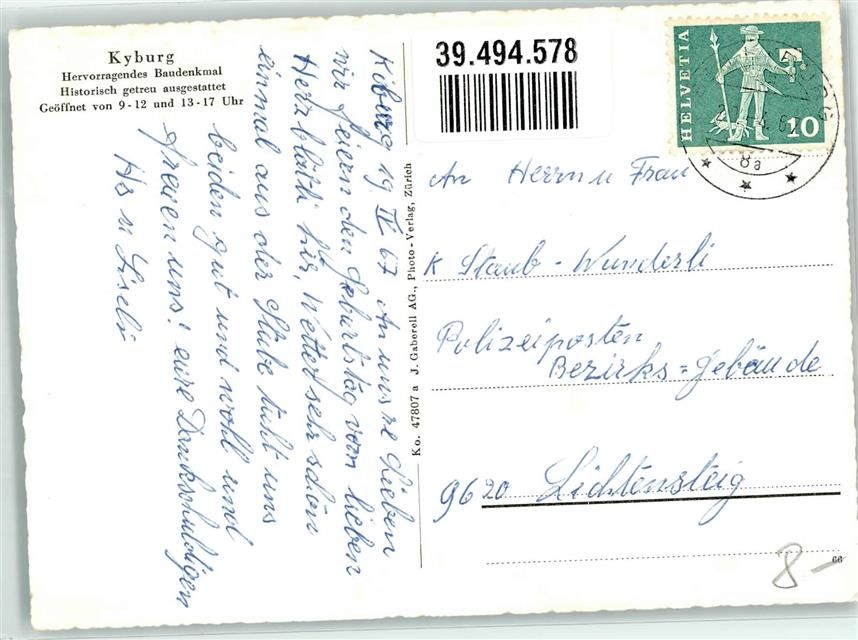 Kyburg
Hervorragendes Baudenkmal
Historisch getreu ausgestattet
Geöffnet von 9-12 und 13-17 Uhr
Kiburg 19 IV 67 An unsre Lieben
wir feiern den Geburtstag vom lieben
Herzblätti hir, Wetter sehr schön
einmal aus der Stube tuht uns
beiden gut und wohl und
freuen uns! eure Dankschuldigen
Hs u Liseli
Ko. 47807 a J. Gaberell AG., Photo-Verlag, Zürich
39.494.578
HELVETIA
10
8a
An Herrn u Frau
K Staub - Wunderli
Polizeiposten
Bezirks=Gebäude
9620 Lichtensteig
8-
66